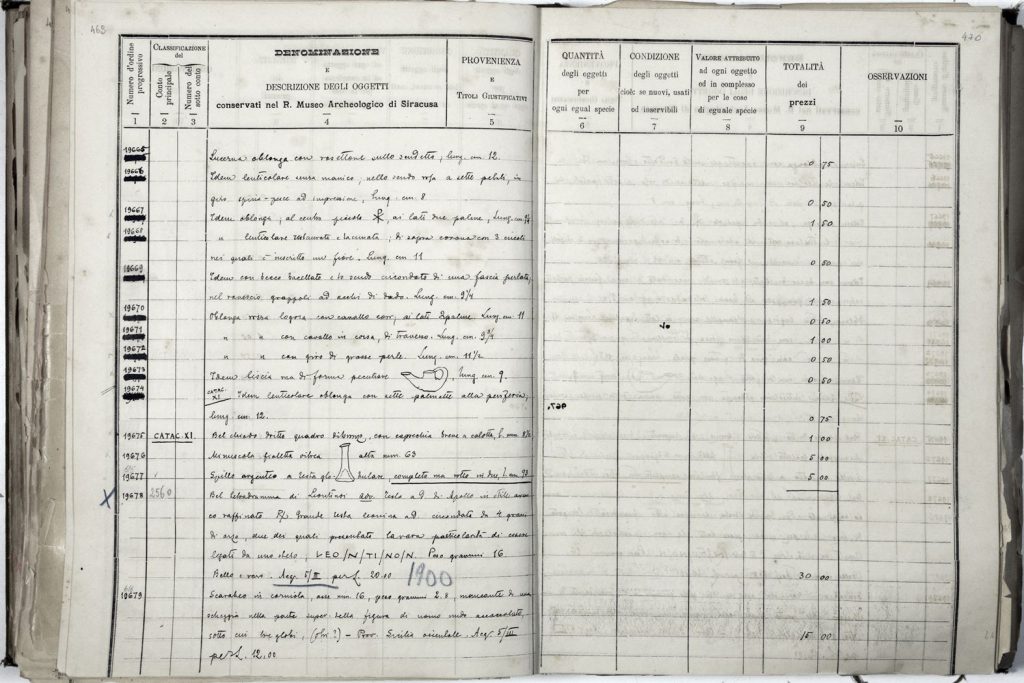 469
Numero d'ordine progressivo
CLASSIFICAZIONE
del
Conto principale
Numero del sotto conto
DENOMINAZIONE
E
DESCRIZIONE DEGLI OGGETTI
conservati nel R. Museo Archeologico di Siracusa
PROVENIENZA
E
TITOLI GIUSTIFICATIVI
1 2 3 4 5
19665 Lucerna oblonga con rosettone sullo scudetto; lung. cm. 12.
19666 Idem lenticolare senza manico, nello scudo rosa a sette petali, in
giro ad impressione, lung. cm. 8
19667 Idem oblonga; al centro piccolo ☧, ai lati due palme, Lung. cm.
19668 " lenticolare restaurata e lacunata; di sopra corona con 3 circoli
nei quali è inscritto un fiore. Lung. cm. 11
19669 Idem con becco e lo scudo circondato di una fascia perlata,
nel rovescio grappoli ad occhi di dado. Lung. cm. 9 1/4
19670 Oblonga rossa logora con cavallo corr; ai lati 2 palme. Lung. cm. 11
19671 " " con cavallo in corsa, di traverso. Lung. cm. 9 3/4
19672 " " con giro di grosse perle. Lung. cm. 11 1/2
19673 Idem liscia ma di forma peculiare , lung. cm. 9.
19674 CATAC. XI. Idem lenticolare oblonga con sette palmette alla periferia;
lung. cm. 12.
19675 CATAC. XI. Bel chiodo dritto quadro di bronzo, con capocchia breve a calotta, l. mm.
19676 Minuscola fialetta vitrea alta mm. 63
19677 Spillo argenteo a testa globulare, completo ma rotto in due, l. mm. 93
X 19678 2560 Bel tetradramma di Leontinoi adv. Testa a D di Apollo in stile arcai
co raffinato R) Grande testa leonina ad circondata da 4 grani
di orzo, due dei quali presentano la rara particolarità di essere
legati da uno stelo, LEO/N/TI/NO/N. Peso grammi 16.
Bello e raro. Acq. 5/II per £. 30.00 1900
19679 Scarabeo in corniola, asse mm. 16, peso grammi 2.8, mancante di una
scheggia nella parte super. della figura di uomo nudo
sotto cui tre globi, (obi ?) - Prov. Sicilia orientale. Acq. 5/III
per £. 12.00
470
QUANTITÀ
degli oggetti
per
ogni egual specie
CONDIZIONE
degli oggetti
cioè: se nuovi, usati
od inservibili
VALORE ATTRIBUITO
ad ogni oggetto
od in complesso
per le cose
di eguale specie
TOTALITÀ
dei
prezzi
OSSERVAZIONI
6 7 8 9 10
0 75
0 50
1 50
0 50
1 50
0 50
1 00
0 50
0 50
0 75
1 00
5 00
5 00
30 00
15 00